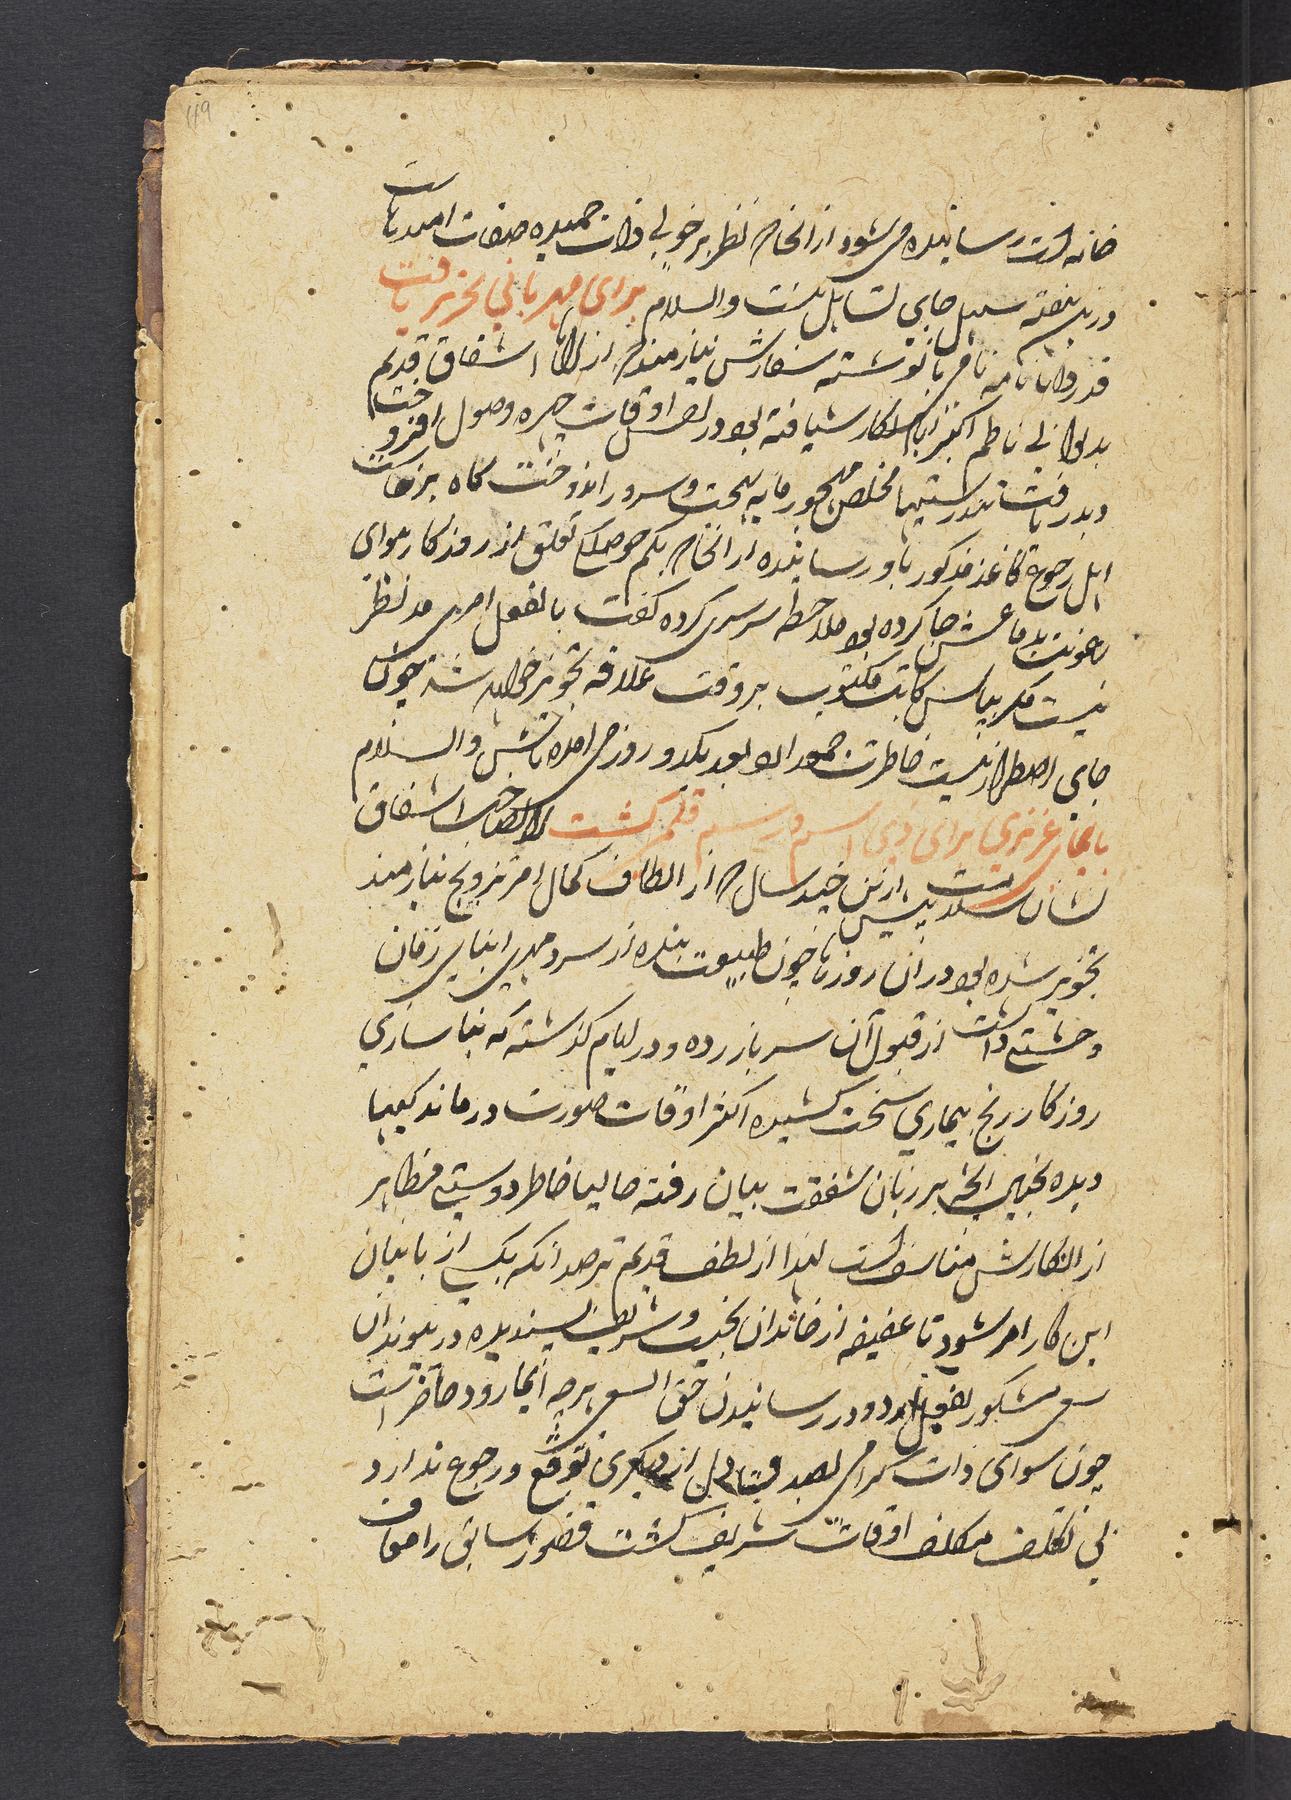 119
خانه است رسانیده می شود از انجا که نظر بر خوبی ذات حمیده صفات امید است
درین هفته سبیل جای تساهل نیست والسلام برای مهربانی تحریر یافت
قدردانا نامه نامی با نوشته سفارش نیازمند که از اشفاق قدیم
بدیوانی ناظم اکبراباد نگارش یافته بود در اوقات چهره وصول افروخت
و بدریافت تندرستیها مخلص مهجور مایه بهجت و سرور اندوخت گاه برخاست
اهل رجوع کاغذ مذکور باو رسانیده از انجا که بکم حوصلگی تعلق از روزگار هوای
رعونت بدماغش جا کرده بود ملاحظه سرسری کرده گفت بالفعل امری مد نظر
نیست مگر بپاس کاتب مکتوب بر وقت علاقه تجویز خواهد شد چون
جای اضطرار نیست خاطر جمع دارد بعد یکدو روز می امده باشش والسلام
بانجا عزیزی برای ذی اسم در رسم قلم گشت اشفاق
نشان سلامت پیش ازین چند سال که از الطاف کمال امر تزویج نیازمند
تجویز شده بود در ان روزها چون طبیعت بنده از سردمهری ابنای زمان
وحشتی داشت از قبول آن سر باز زده و در ایام گذشته که بناسازی
روزگار رنج بیماری سخت کشیده اکثر اوقات صورت درماندگیها
دیده بخیر انچه بر زبان شفقت بیان رفته حالیا خاطر دوستی مظاهر
از انکارش متاسف است لهذا از لطف قدیم ترصد انکه بیکی از بانیان
این کار امر شود تا عفیفه از خاندان نجیب و شریف پسندیده در پیوند ان
سعی مشکور بعمل ارد و در رسانیدن حق السعی هرچه ایما رود حاضر است
چون سوای ذات گرامی دل از دیگری توقع و رجوع ندارد
بی تکلف مکلف اوقات شریف گشت قصور سابق را معاف